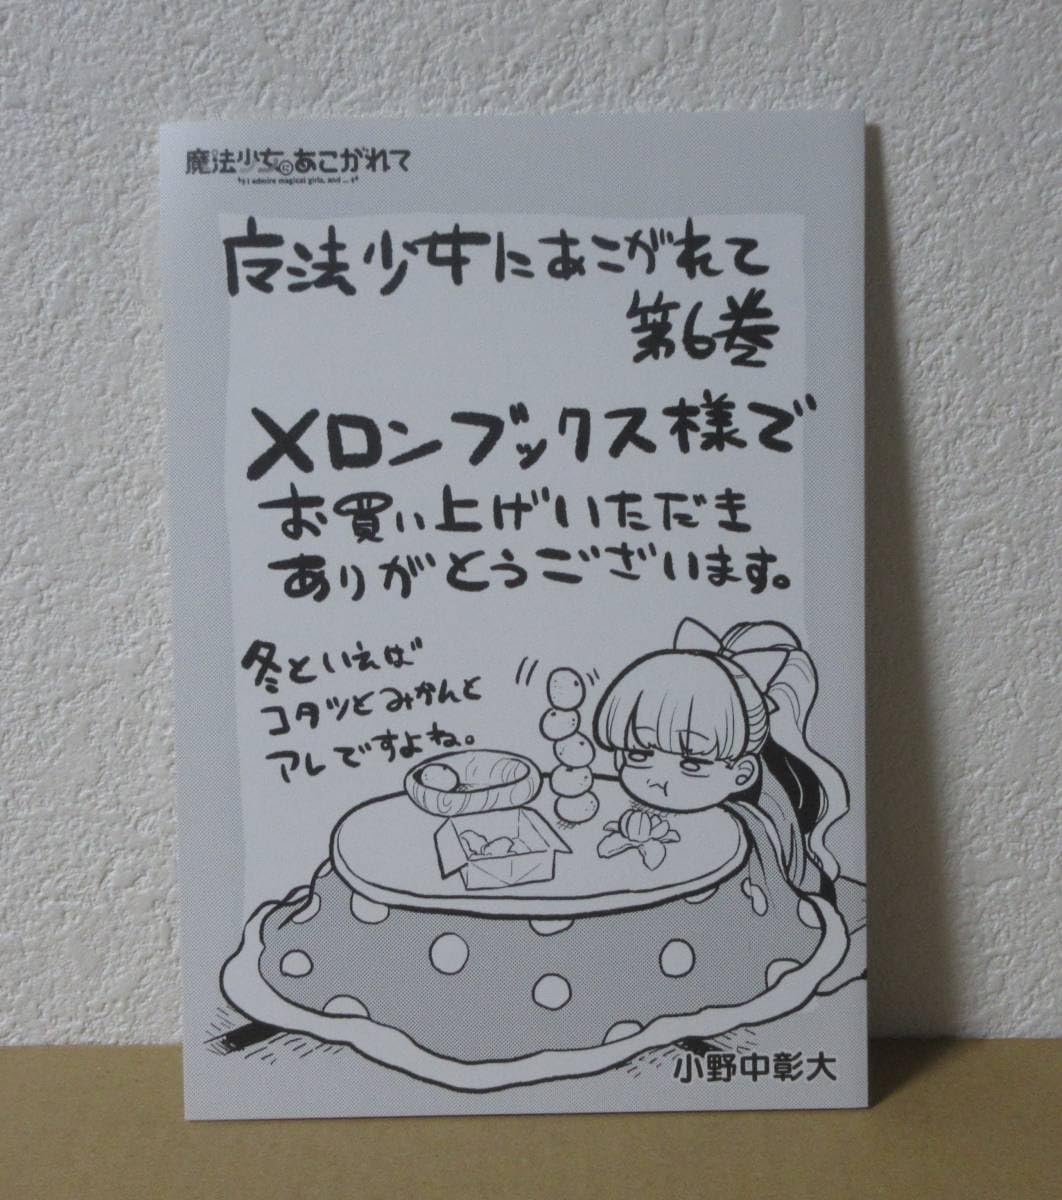 魔法少女にあこがれて
I admire magical girls, and ...
魔法少女にあこがれて
第6巻
メロンブックス様で
お買い上げいただき
ありがとうございます。
冬といえば
コタツとみかんと
アレですよね。
小野中彰大